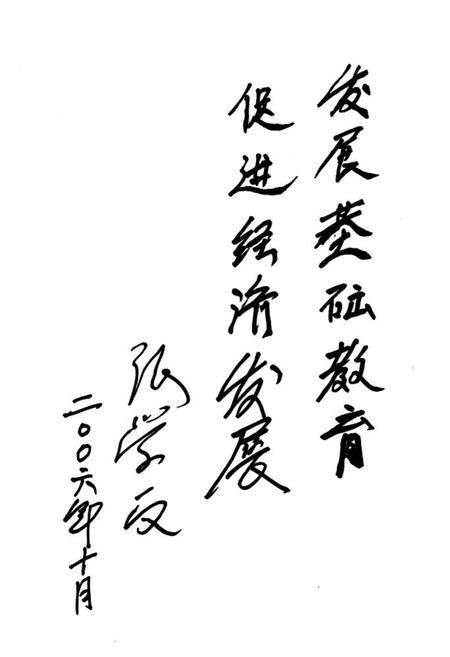 发展基础教育
促进经济发展
张学文
二〇〇六年十月